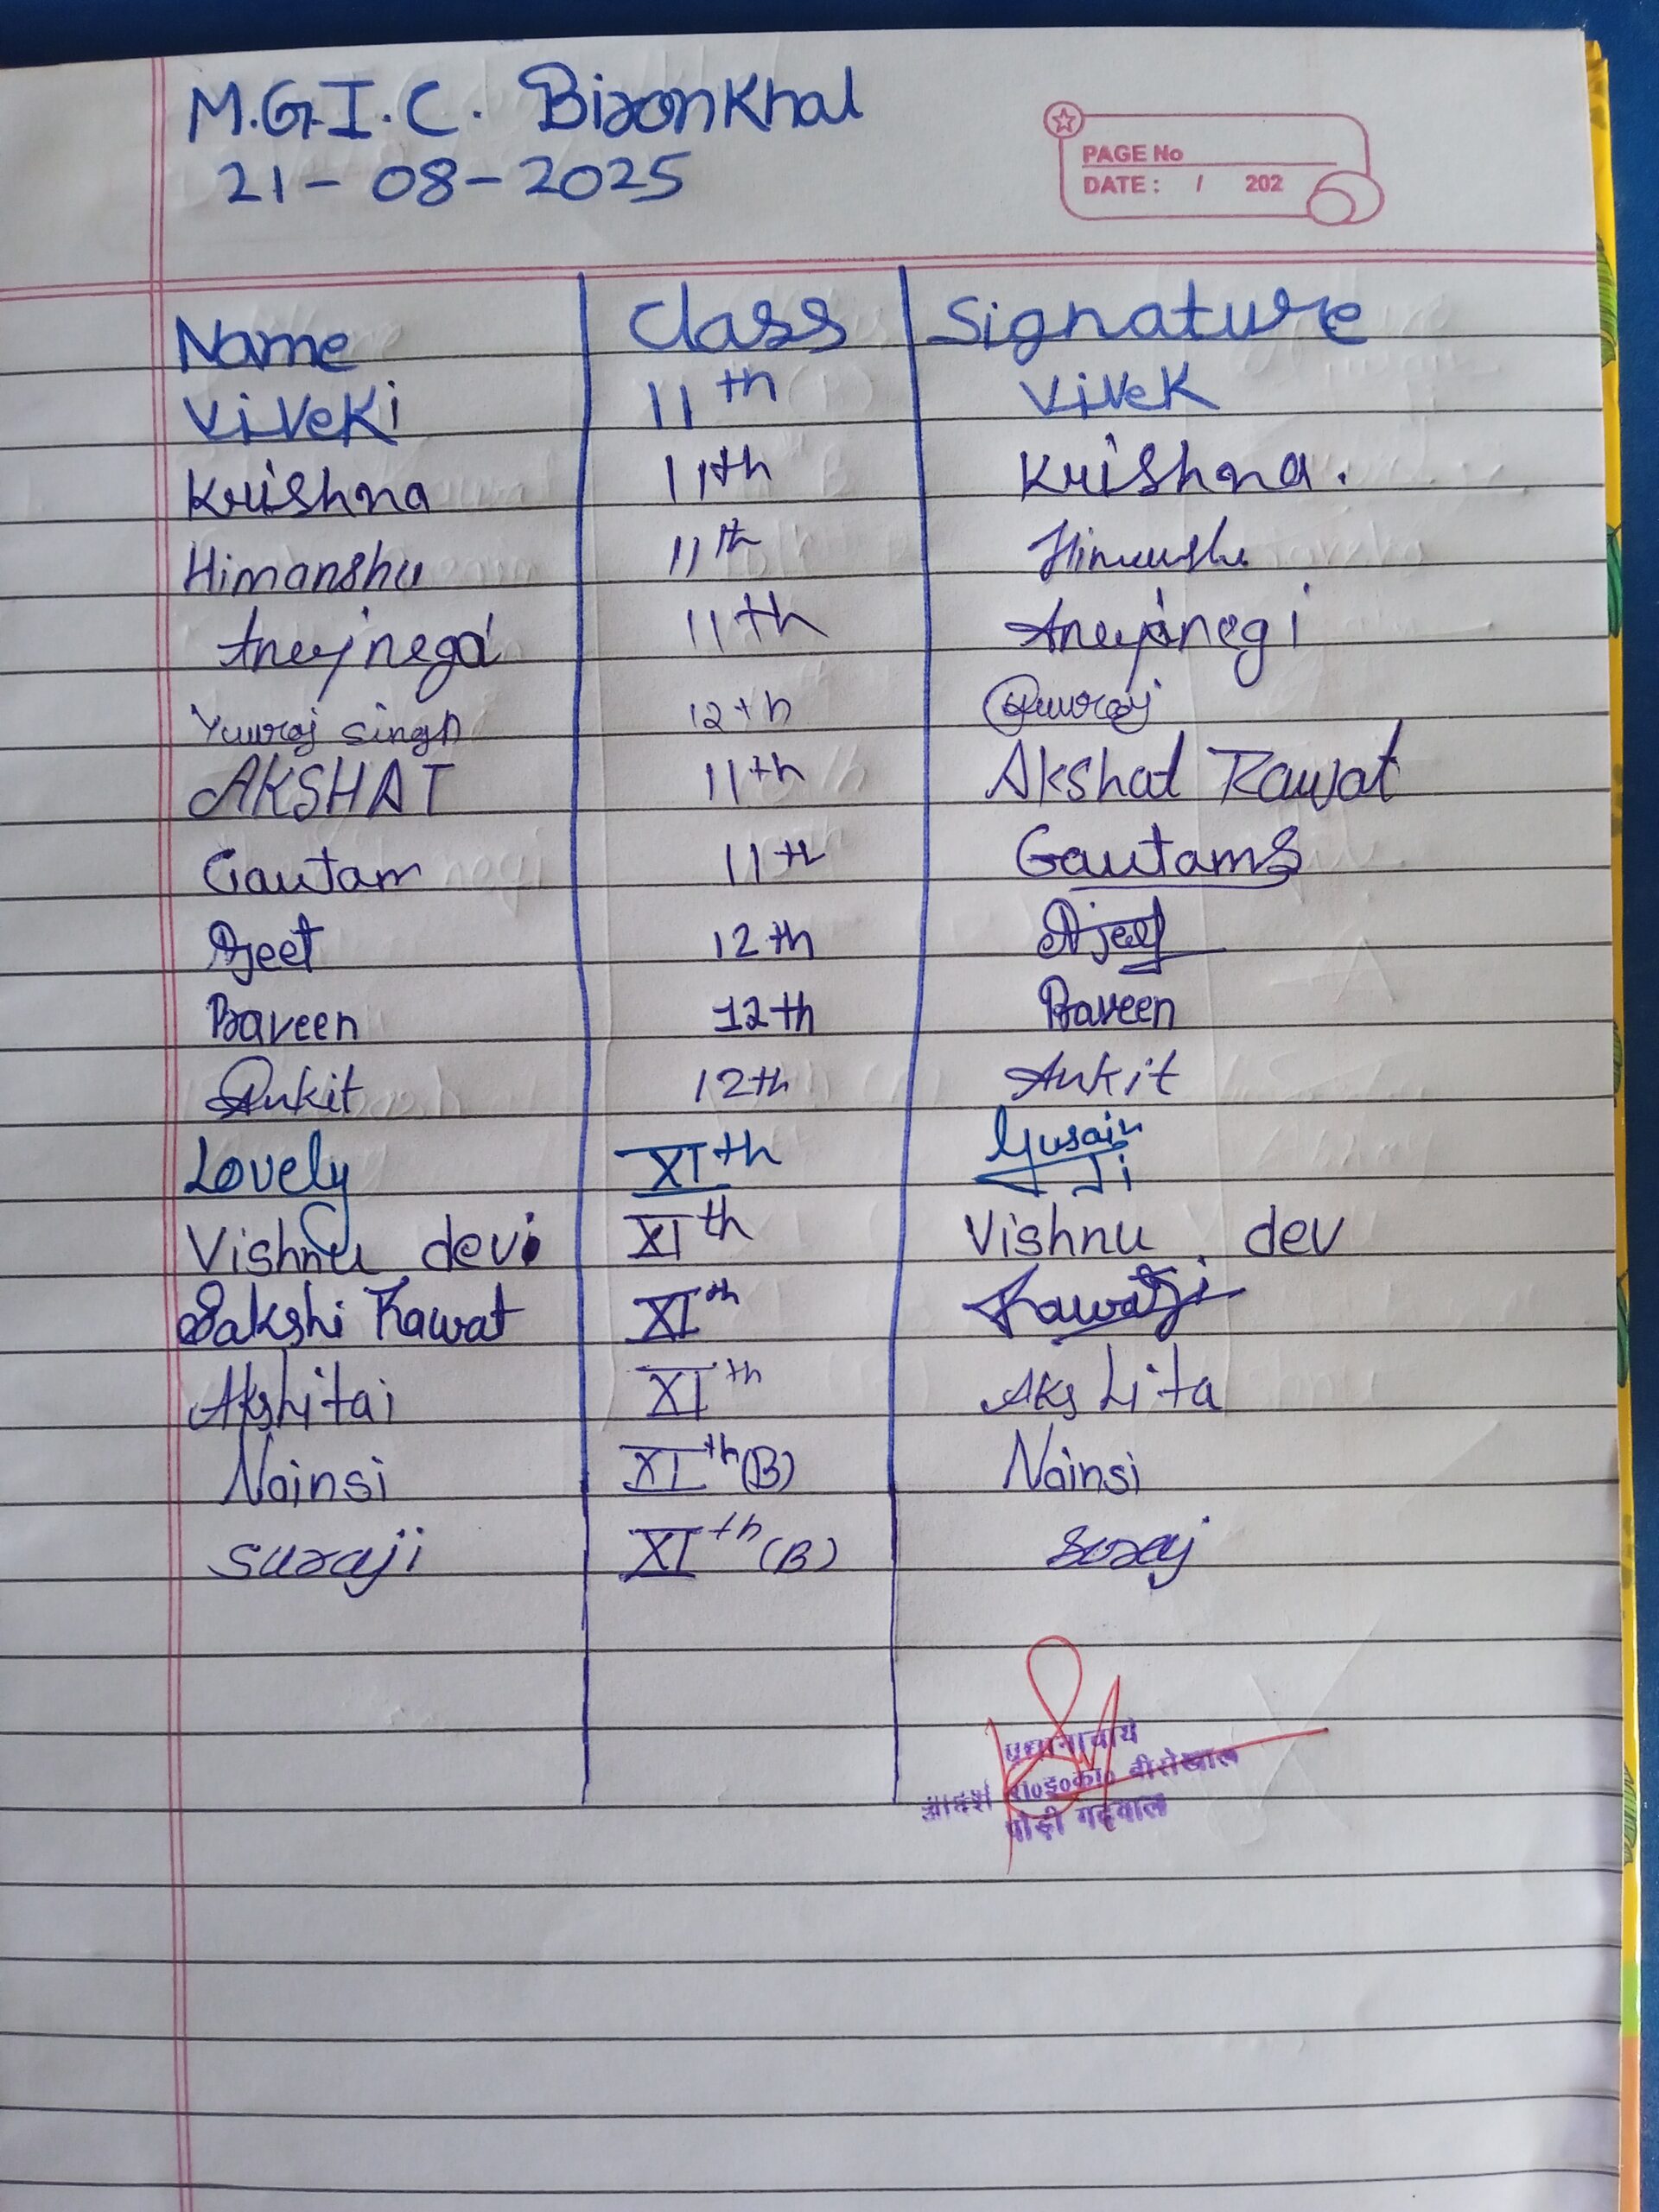 M.G.I.C. Bironkhal
21-08-2025
PAGE No
DATE: / 202
Name Class Signature
Viveki 11th Vivek
Krishna 11th Krishna.
Himanshu 11th Himanshu
11th
Yuvraj Singh 12th Yuvraj
AKSHAT 11th Akshat Rawat
Gautam 11th Gautams
Ajeet 12th Ajeet
Praveen 12th Praveen
Ankit 12th Ankit
Lovely XIth Gusain
Ji
Vishnu devi XIth Vishnu dev
Sakshi Rawat XIth Rawatji
Akshitai XIth Akshita
Nainsi XIth (B) Nainsi
Suraji XIth (B) Suraj
प्रधानाचार्य
आदर्श रा०इ०का० बीरोंखाल
पौड़ी गढ़वाल